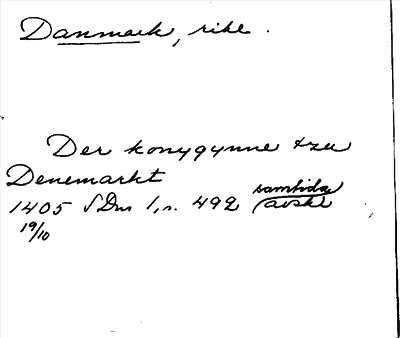 Danmark, rike.
Der konygynne tzu
Denemarkt
1405 SDns 1, s. 492 samtida
19/10 avskr